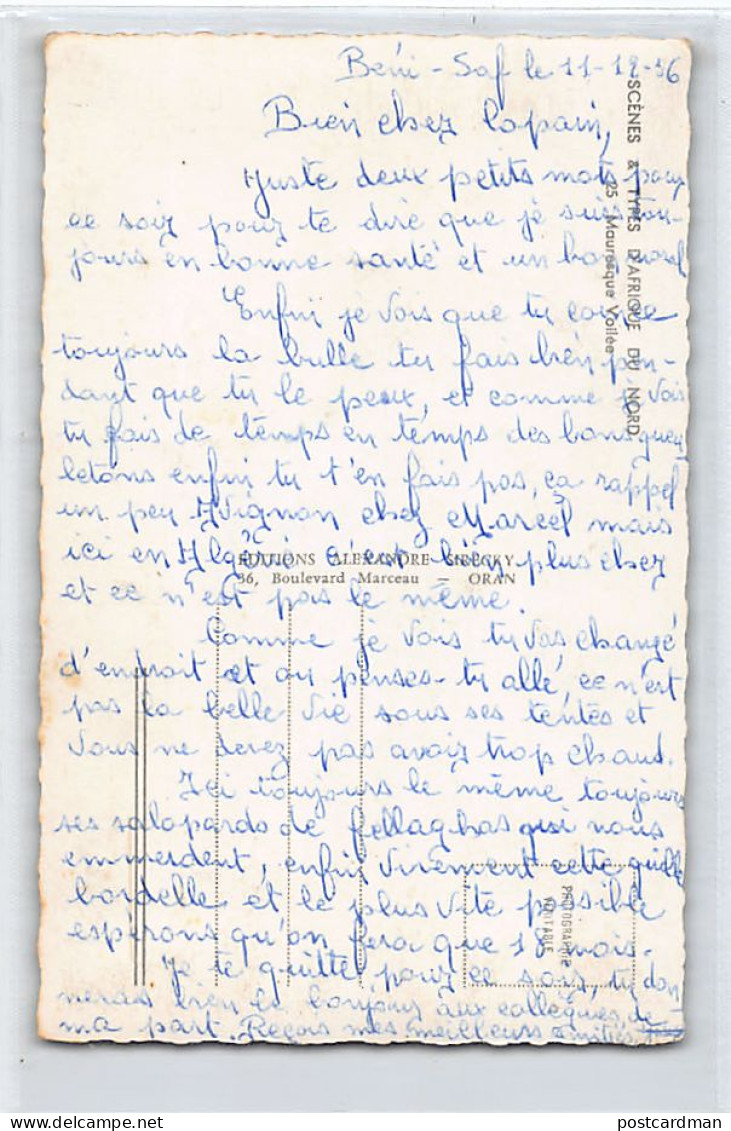 Béni-Saf le 11-12-56
Bien cher copain,
Juste deux petits mots pour
ce soir pour te dire que je suis tou-
jours en bonne santé et un bon moral
Enfin je vois que tu coince
toujours la bulle tu fais bien pen-
dant que tu le peux, et comme je vois
tu fais de temps en temps des bons gueu-
letons enfin tu t'en fais pas, ça rappel
un peu Avignon chez Marcel mais
ici en Algérie c'est bien plus cher
et ce n'est pas le même.
Comme je vois tu vas changé
d'endroit et ou penses-tu allé, ce n'est
pas la belle vie sous ses tentes et
vous ne devez pas avoir trop chaud.
Ici toujours le même toujours
ses salopards de fellaghas qui nous
emmerdent, enfin vivement cette quille
bordelle et le plus vite possible
espérons qu'on fera que 18 mois.
Je te quitte pour ce soir, tu don
neras bien le bonjour aux collègues de
ma part. Reçois mes meilleurs amitiés.
SCÈNES & TYPES D'AFRIQUE DU NORD
25 Mauresque Voilée
EDITIONS ALEXANDRE SIRECKY
36, Boulevard Marceau — ORAN
PHOTOGRAPHIE
VÉRITABLE
postcardman